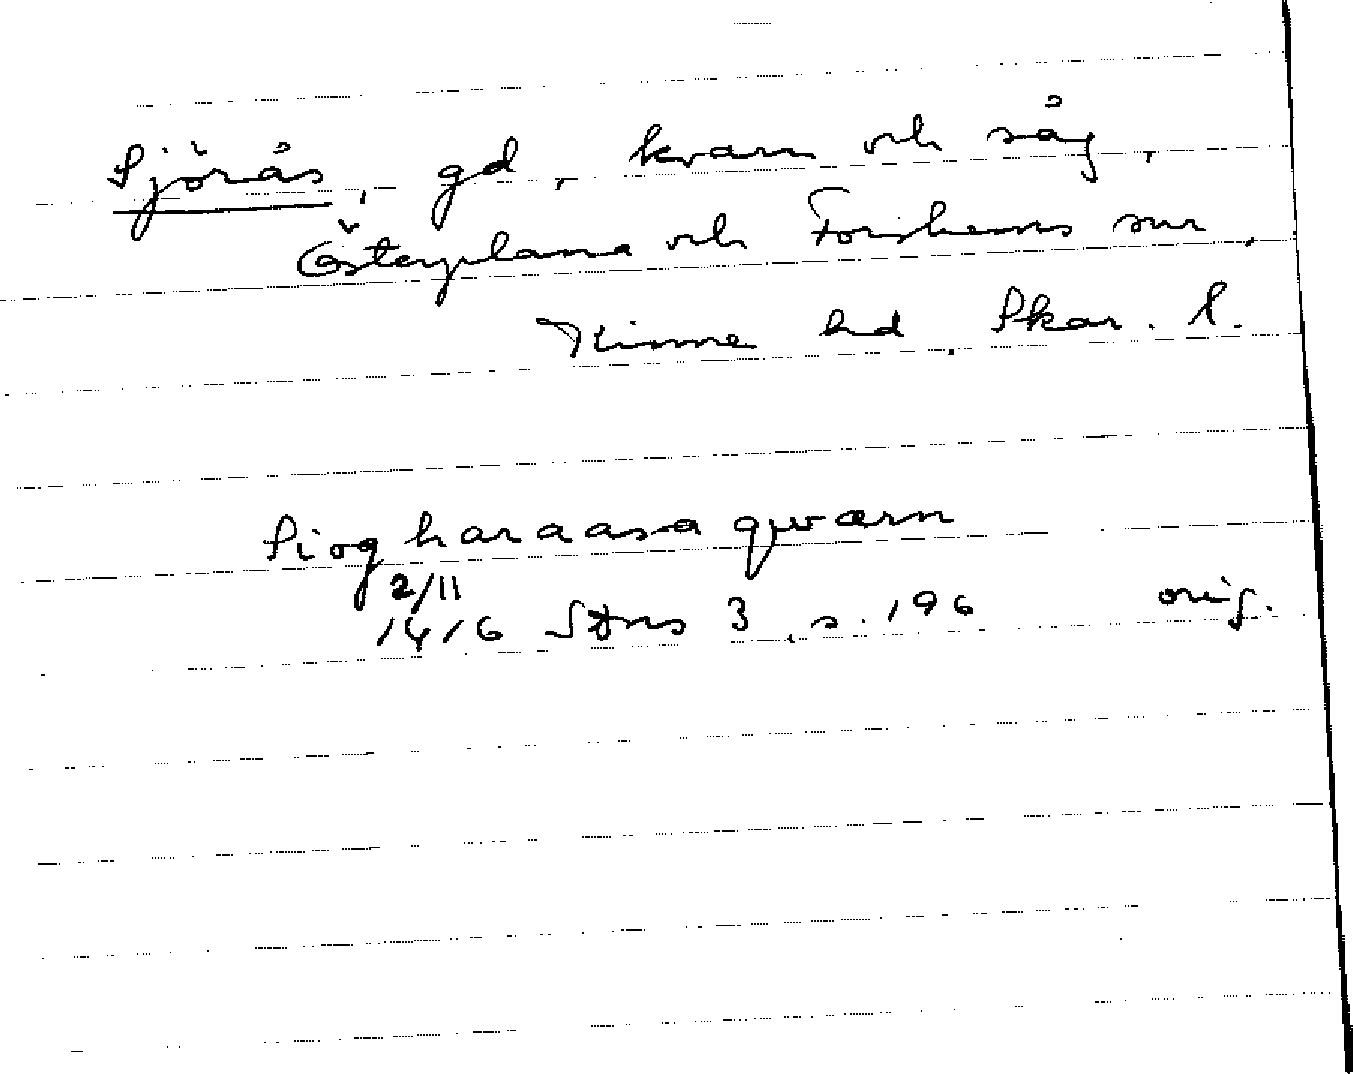 Sjörås, gd, kvarn och såg,
Österplana och Forshems snr,
Kinne hd. Skar. l.
Siogharaasa qwærn
2/11
1416 SDns 3, s. 196 orig.